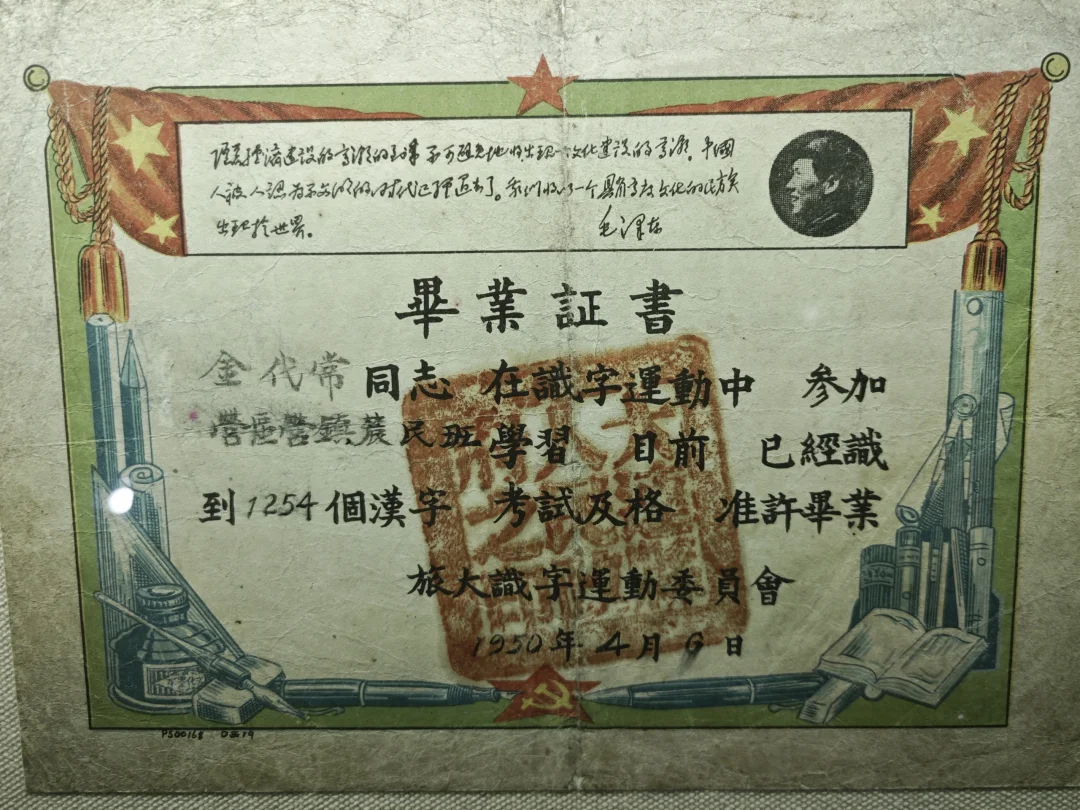 随着經濟建設的高潮的到來不可避免地将出現一个文化建設的高潮。中國
人被人認為不文明的时代已經过去了。我们将以一个具有高度文化的民族
出現於世界。
毛澤东
畢業証書
金代常同志 在識字運動中 參加
營區營鎮農民班學習 目前 已經識
到1254個漢字 考試及格 准許畢業
旅大識字運動委員會
1950年4月6日
PS00168